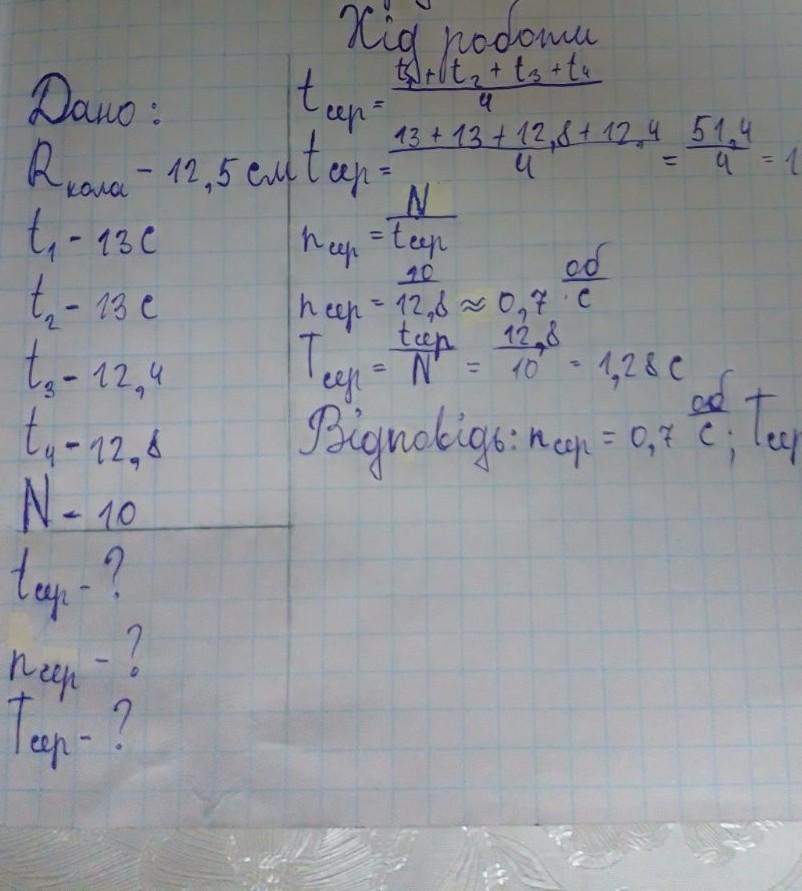 Хід роботи
Дано:
Rкола - 12,5 см
t₁ - 13 с
t₂ - 13 с
t₃ - 12,4
t₄ - 12,8
N - 10
tсер - ?
nсер - ?
Tсер - ?
tсер = (t₁ + t₂ + t₃ + t₄)/4
tсер = (13 + 13 + 12,8 + 12,4)/4 = 51,4/4 = 1
nсер = N/tсер
nсер = 10/12,8 ≈ 0,7 об/с
Tсер = tсер/N = 12,8/10 = 1,28 с
Відповідь: nсер = 0,7 об/с; Tсер